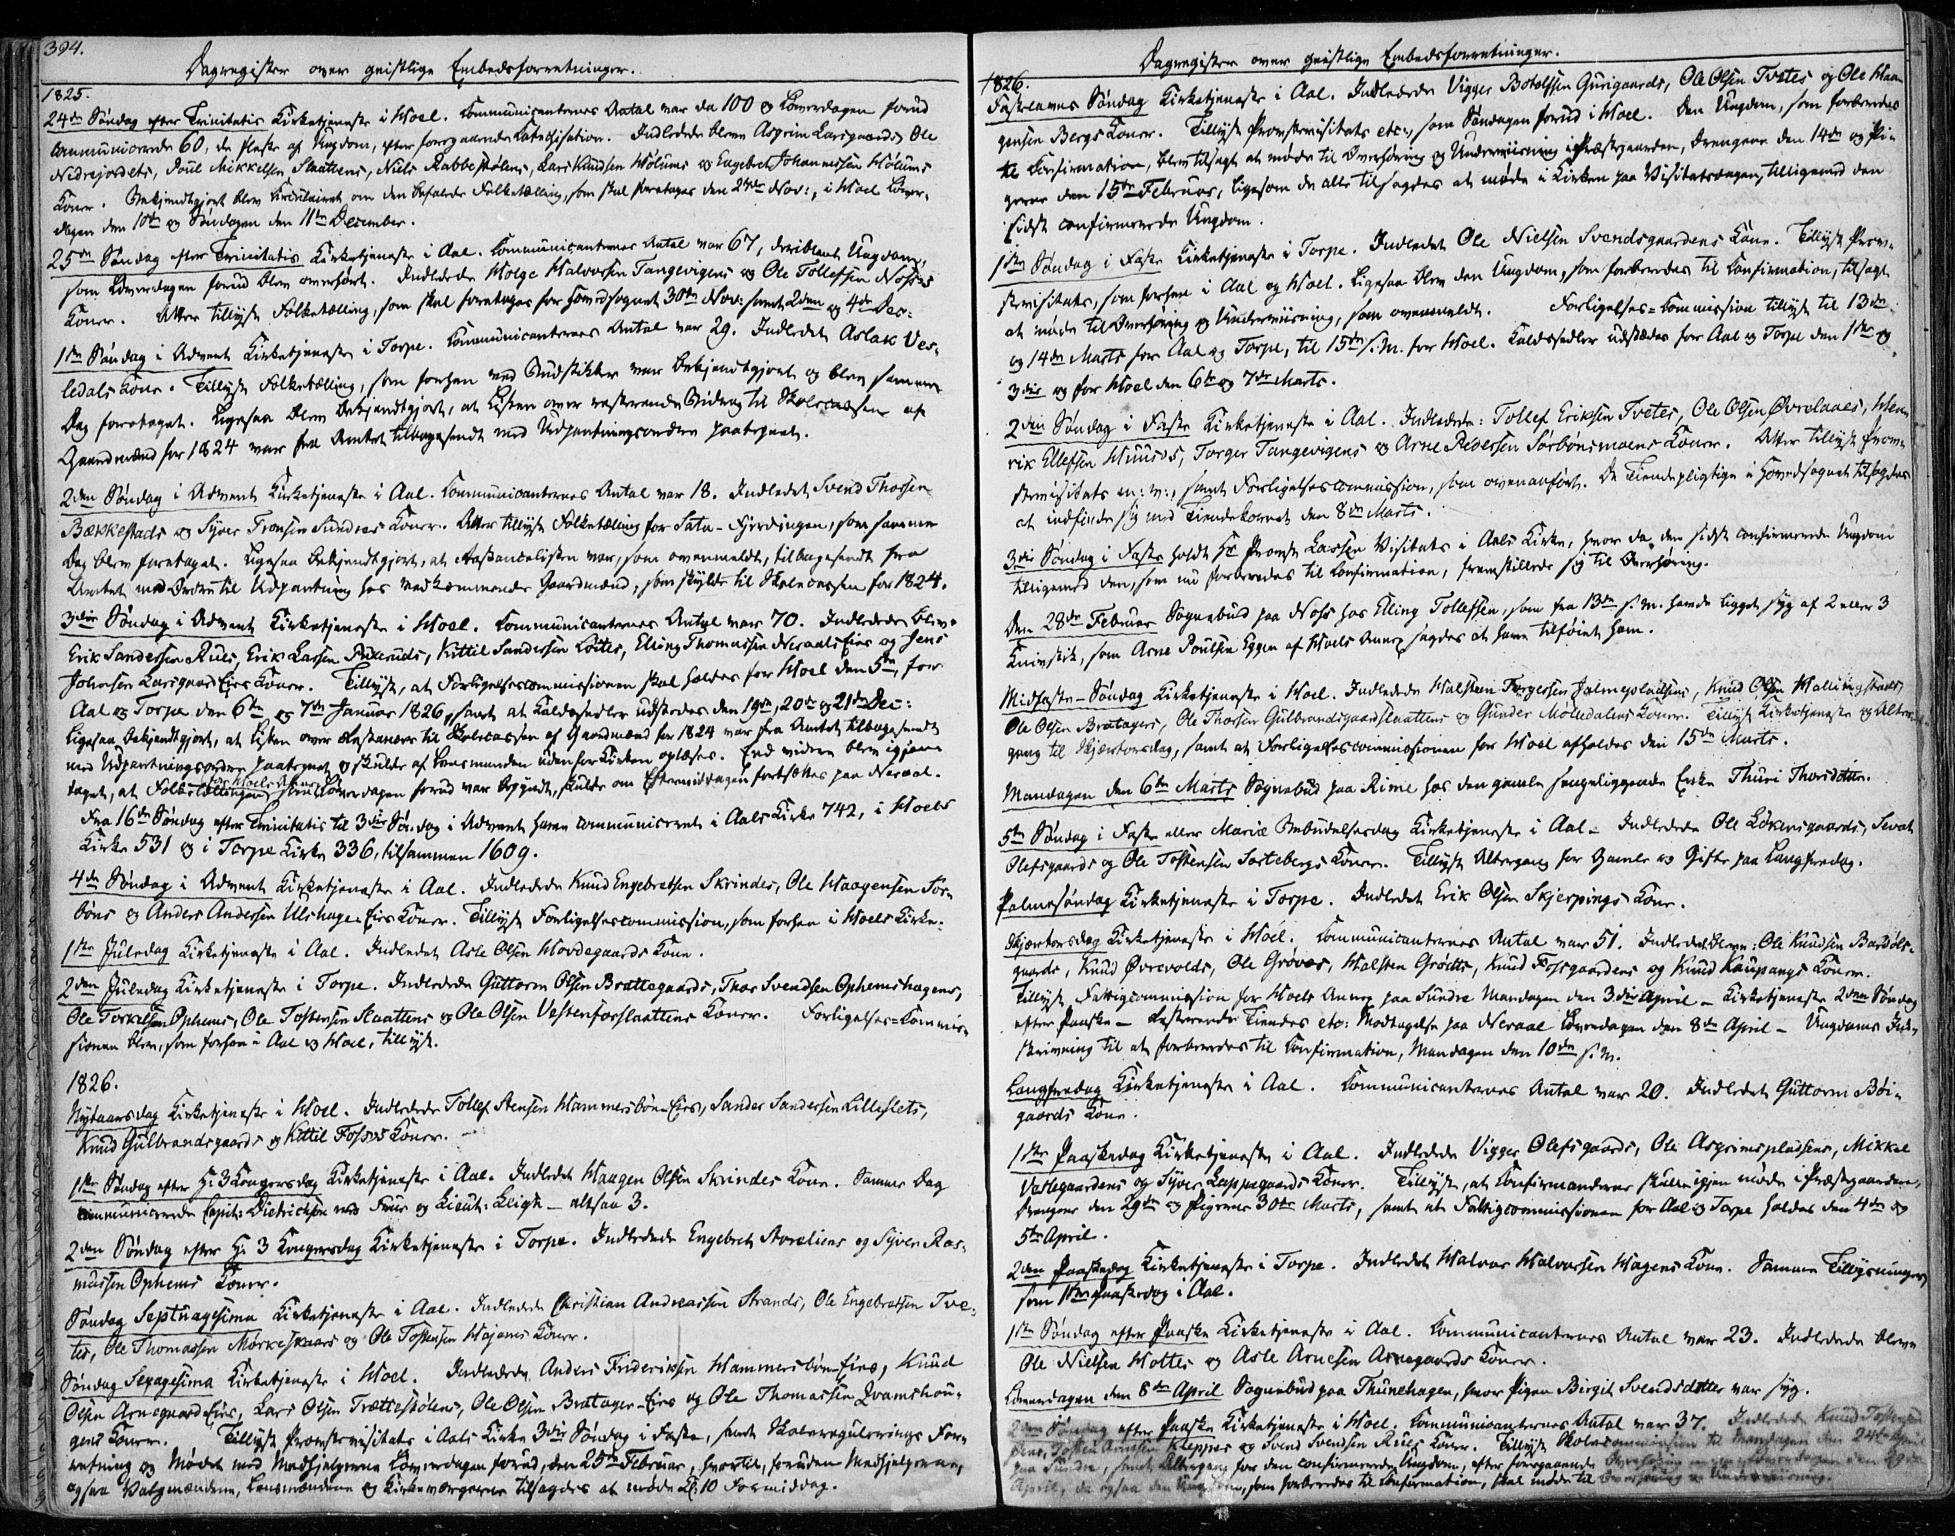 394.
Dagregister over geistlige Embedsforretninger.
1825.
24de Søndag efter Trinitatis Kirketjeneste i Hoel. Communicanternes Antal var da 100 og Løverdagen forud
communicerede 60, de fleste af Ungdom, efter foregaaende Catechisation. Indledede bleve Asgrim Larsgaards, Ole
Nedrejordets, Poul Mikkelsen Slaattens, Niels Rabbestølens, Lars Knudsen Holums og Engebret Johannessen Holums
Koner. Bekjendtgjort blev Circulairet om den befalede Folketælling, som skal foretages den 24de Nov:, i Hoel Løver-
dagen den 10de og Søndagen den 11te December.
25de Søndag efter Trinitatis Kirketjeneste i Aal. Communicanternes Antal var 67, deriblant Ungdom,
som Løverdagen forud blev overhørt. Indledede Holge Halvorsen Tangevigens og Ole Tollefsen Noss's
Koner. Atter tillyst Folketælling, som skal foretages for Hovedsognet 30te Nov: samt 2den og 4de Dec:
1ste Søndag i Advent Kirketjeneste i Torpe. Communicanternes Antal var 29. Indledet Aslak Ves-
ledals Kone. Tillyst Folketælling, som forhen ved Budstikke var bekjendtgjort og blev samme
Dag foretaget. Ligesaa blev bekjendtgjort, at Listen over resterende Bidrag til Skolecassen af
Gaardmænd for 1824 var fra Amtet tilbagesendt med Udpantningsordre paategnet.
2den Søndag i Advent Kirketjeneste i Aal. Communicanternes Antal var 18. Indledet Svend Thorsen
Bækkestads og Syver Tronsen Sundres Koner. Atter tillyst Folketælling for Sata-Fjerdingen, som samme
Dag blev foretaget. Ligesaa bekjendtgjort, at Restancelisten var, som ovenmeldt, tilbagesendt fra
Amtet med Ordre til Udpantning hos vedkommende Gaardmænd, som skylde til Skolecassen for 1824.
3die Søndag i Advent Kirketjeneste i Hoel. Communicanternes Antal var 70. Indledede bleve
Erik Sandersen Rues, Erik Larsen Piukeruds, Kittil Sandersen Loftes, Elling Thomassen Neraals Eies og Jens
Johnsen Larsgaards Eies Koner. Tillyst, at Forligelsescommissionen skal holdes for Hoel den 5te, for
Aal og Torpe den 6te og 7de Januar 1826, samt at Kaldssedler udstedes den 19de, 20de og 21de Dec:
Ligesaa bekjendtgjort, at Listen over Restancer til Skolecassen af Gaardmænd for 1824 var fra Amtet tilbagesendt
med Udpantningsordre paategnet og skulde af Lensmanden udenfor Kirken oplæses. End videre blev igjen-
taget, at Folketællingen for Hoels Annex, som Løverdagen forud var begyndt, skulde om Eftermiddagen fortsættes paa Neraal.
Fra 16de Søndag efter Trinitatis til 3die Søndag i Advent have communiceret i Aals Kirke 742, i Hoels
Kirke 531 og i Torpe Kirke 336, tilsammen 1609.
4de Søndag i Advent Kirketjeneste i Aal. Indledede Knud Engebretsen Skrindes, Ole Haagensen Sør-
bøns og Anders Andersen Ulshage-Eies Koner. Tillyst Forligelsescommission, som forhen i Hoels Kirke.
1ste Juledag Kirketjeneste i Aal. Indledet Asle Olsen Hovdegaards Kone.
2den Juledag Kirketjeneste i Torpe. Indledede Guttorm Olsen Brattegaards, Thor Svendsen Ophemshagens,
Ole Torkelsen Ophems, Ole Tostensen Slaattens og Ole Olsen Vestenforslaattens Koner. Forligelses-Commis-
sionen blev, som forhen i Aal og Hoel, tillyst.
1826.
Nytaarsdag Kirketjeneste i Hoel. Indledede Tollef Stensen Hammersbøn-Eies, Sander Sandersen Lilleslets,
Knud Gulbrandsgaards og Kittil Foss's Koner.
1ste Søndag efter H: 3 Kongersdag Kirketjeneste i Aal. Indledet Haagen Olsen Skrindes Kone. Samme Dag
communicerede Capit: Dietrichson med Frue og Lieut: Leigh — altsaa 3.
2den Søndag efter H: 3 Kongersdag Kirketjeneste i Torpe. Indledede Engebret Aureliens og Syver Ras-
mussen Ophems Koner.
Søndag Septuagesima Kirketjeneste i Aal. Indledede Christian Andreassen Strands, Ole Engebretsen Tve-
tes, Ole Thomassen Mørkeskaars og Ole Tostensen Hajems Koner.
Søndag Sexagesima Kirketjeneste i Hoel. Indledede Anders Frideriksen Hammersbøn-Eies, Knud
Olsen Arnegaard Eies, Lars Olsen Trættestølens, Ole Olsen Bratager-Eies og Ole Thomassen Qvamshau-
gens Koner. Tillyst Provstevisitats i Aals Kirke 3die Søndag i Faste, samt Skoleregulerings For-
retning og Møde med Medhjelperne Løverdagen forud, den 25de Februar, hvortil, foruden Medhjelperne,
ogsaa Valgmændene, Lensmændene og Kirkeværgerne tilsagdes at møde Kl: 10 Formiddag.
Dagregister over geistlige Embedsforretninger.
1826.
Fastelavns Søndag Kirketjeneste i Aal. Indledede Vigger Botolfsen Gurigaards, Ole Olsen Tvetes og Ole Haa-
gensen Bergs Koner. Tillyst Provstevisitats etc:, som Søndagen forud i Hoel. Den Ungdom, som forberedes
til Confirmation, blev tilsagt at møde til Overhøring og Underviisning i Præstegaarden, Drengene den 14de og Pi-
gerne den 15de Februar, ligesom de alle tilsagdes at møde i Kirken paa Visitatsdagen, tilligemed den
sidst confirmerede Ungdom.
1ste Søndag i Faste Kirketjeneste i Torpe. Indledet Ole Nielsen Svendsgaardens Kone. Tillyst Prov-
stevisitats, som forhen i Aal og Hoel. Ligesaa blev den Ungdom, som forberedes til Confirmation, tilsagt
at møde til Overhøring og Underviisning, som ovenmeldt. Forligelses-Commission tillyst til 13de
og 14de Marts for Aal og Torpe, til 15de s. M. for Hoel. Kaldssedler udstædes for Aal og Torpe den 1ste og
3die og for Hoel den 6te og 7de Marts.
2den Søndag i Faste Kirketjeneste i Aal. Indledede: Tollef Eriksen Tvetes, Ole Olsen Øvrelaaes, Hen-
rik Ellefsen Huus's, Torger Tangevigens og Arne Pedersen Sørbønsmoens Koner. Atter tillyst Prov-
stevisitats m: v:, samt Forligelsescommission, som ovenanført. De Tiendepligtige i Hovedsognet tilsagdes
at indfinde sig med Tiendekornet den 8de Marts.
3die Søndag i Faste holdt Hr Provst Lassen Visitats i Aals Kirke, hvor da den sidst confirmerede Ungdom
tilligemed den, som nu forberedes til Confirmation, fremstillede sig til Overhøring.
Den 28de Februar Sognebud paa Noss hos Elling Tollefsen, som fra 13de s. M. havde ligget syg af 2 eller 3
Knivstik, som Arne Poulsen Eggen af Hoels Annex sagdes at have tilføiet ham.
Midfaste-Søndag Kirketjeneste i Hoel. Indledede Halsteen Torgersen Jalmepladsens, Knud Olsen Hallingstads,
Ole Olsen Bratagers, Ole Thorsen Gulbrandsgaardslaattens og Gunder Mølledalens Koner. Tillyst Kirketjeneste og Alter-
gang til Skjærtorsdag, samt at Forligelsescommissionen for Hoel afholdes den 15de Marts.
Mandagen den 6te Marts Sognebud paa Rime hos den gamle sengeliggende Enke Thuri Thorsdotter.
5te Søndag i Faste eller Mariæ Bebudelsesdag Kirketjeneste i Aal. Indledede Ole Løkensgaards, Sevat
Olefsgaards og Ole Tostensen Sortebergs Koner. Tillyst Altergang for Gamle og Gifte paa Langfredag.
Palmesøndag Kirketjeneste i Torpe. Indledet Erik Olsen Skjerpings Kone.
Skjærtorsdag Kirketjeneste i Hoel. Communicanternes Antal var 51. Indledet bleve: Ole Knudsen Bardøls-
gaards, Knud Øvrevolds, Ole Grøvos, Halsten Grøtts, Knud Fossgaardens og Knud Kaupangs Koner.
Tillyst Fattigcommission for Hoels Annex paa Sundre Mandagen den 3die April — Kirketjeneste 2den Søndag
efter Paaske — Resterende Tiendes etc: Modtagelse paa Neraal Løverdagen den 8de April — Ungdoms Ind-
skrivning til at forberedes til Confirmation, Mandagen den 10de s. M.
Langfredag Kirketjeneste i Aal. Communicanternes Antal var 20. Indledet Guttorm Bøi-
gaards Kone.
1ste Paaskedag Kirketjeneste i Aal. Indledede Vigger Olefsgaards, Ole Asgrimspladsens, Mikkel
Vatlegaardens og Syver Lappegaards Koner. Tillyst, at Confirmanderne skulle igjen møde i Præstegaarden,
Drengene den 29de og Pigerne 30te Marts, samt at Fattigcommissionen for Aal og Torpe holdes den 4de og
5te April.
2den Paaskedag Kirketjeneste i Torpe. Indledet Halvor Halvorsen Hagens Kone. Samme Tillysninger,
som 1ste Paaskedag i Aal.
1ste Søndag efter Paaske Kirketjeneste i Aal. Communicanternes Antal var 23. Indledede bleve
Ole Nielsen Holtes og Asle Arnesen Arnegaards Koner.
Løverdagen den 8de April Sognebud paa Thunehagen, hvor Pigen Birgit Svendsdotter var syg.
2den Søndag efter Paaske Kirketjeneste i Hoel. Communicanternes Antal var 37. Indledede Knud Tostensen
Arnesen Kleppes og Svend Svendsen Rues Koner. Tillyst Skolecommission til Mandagen den 24de April
paa Sundre, samt Altergang for den confirmerede Ungdom, efter foregaaende Overhøring Løverdagen den 29de
April, da ogsaa den Ungdom, som forberedes til Confirmation, skal møde til Overhøring og Underviisning.